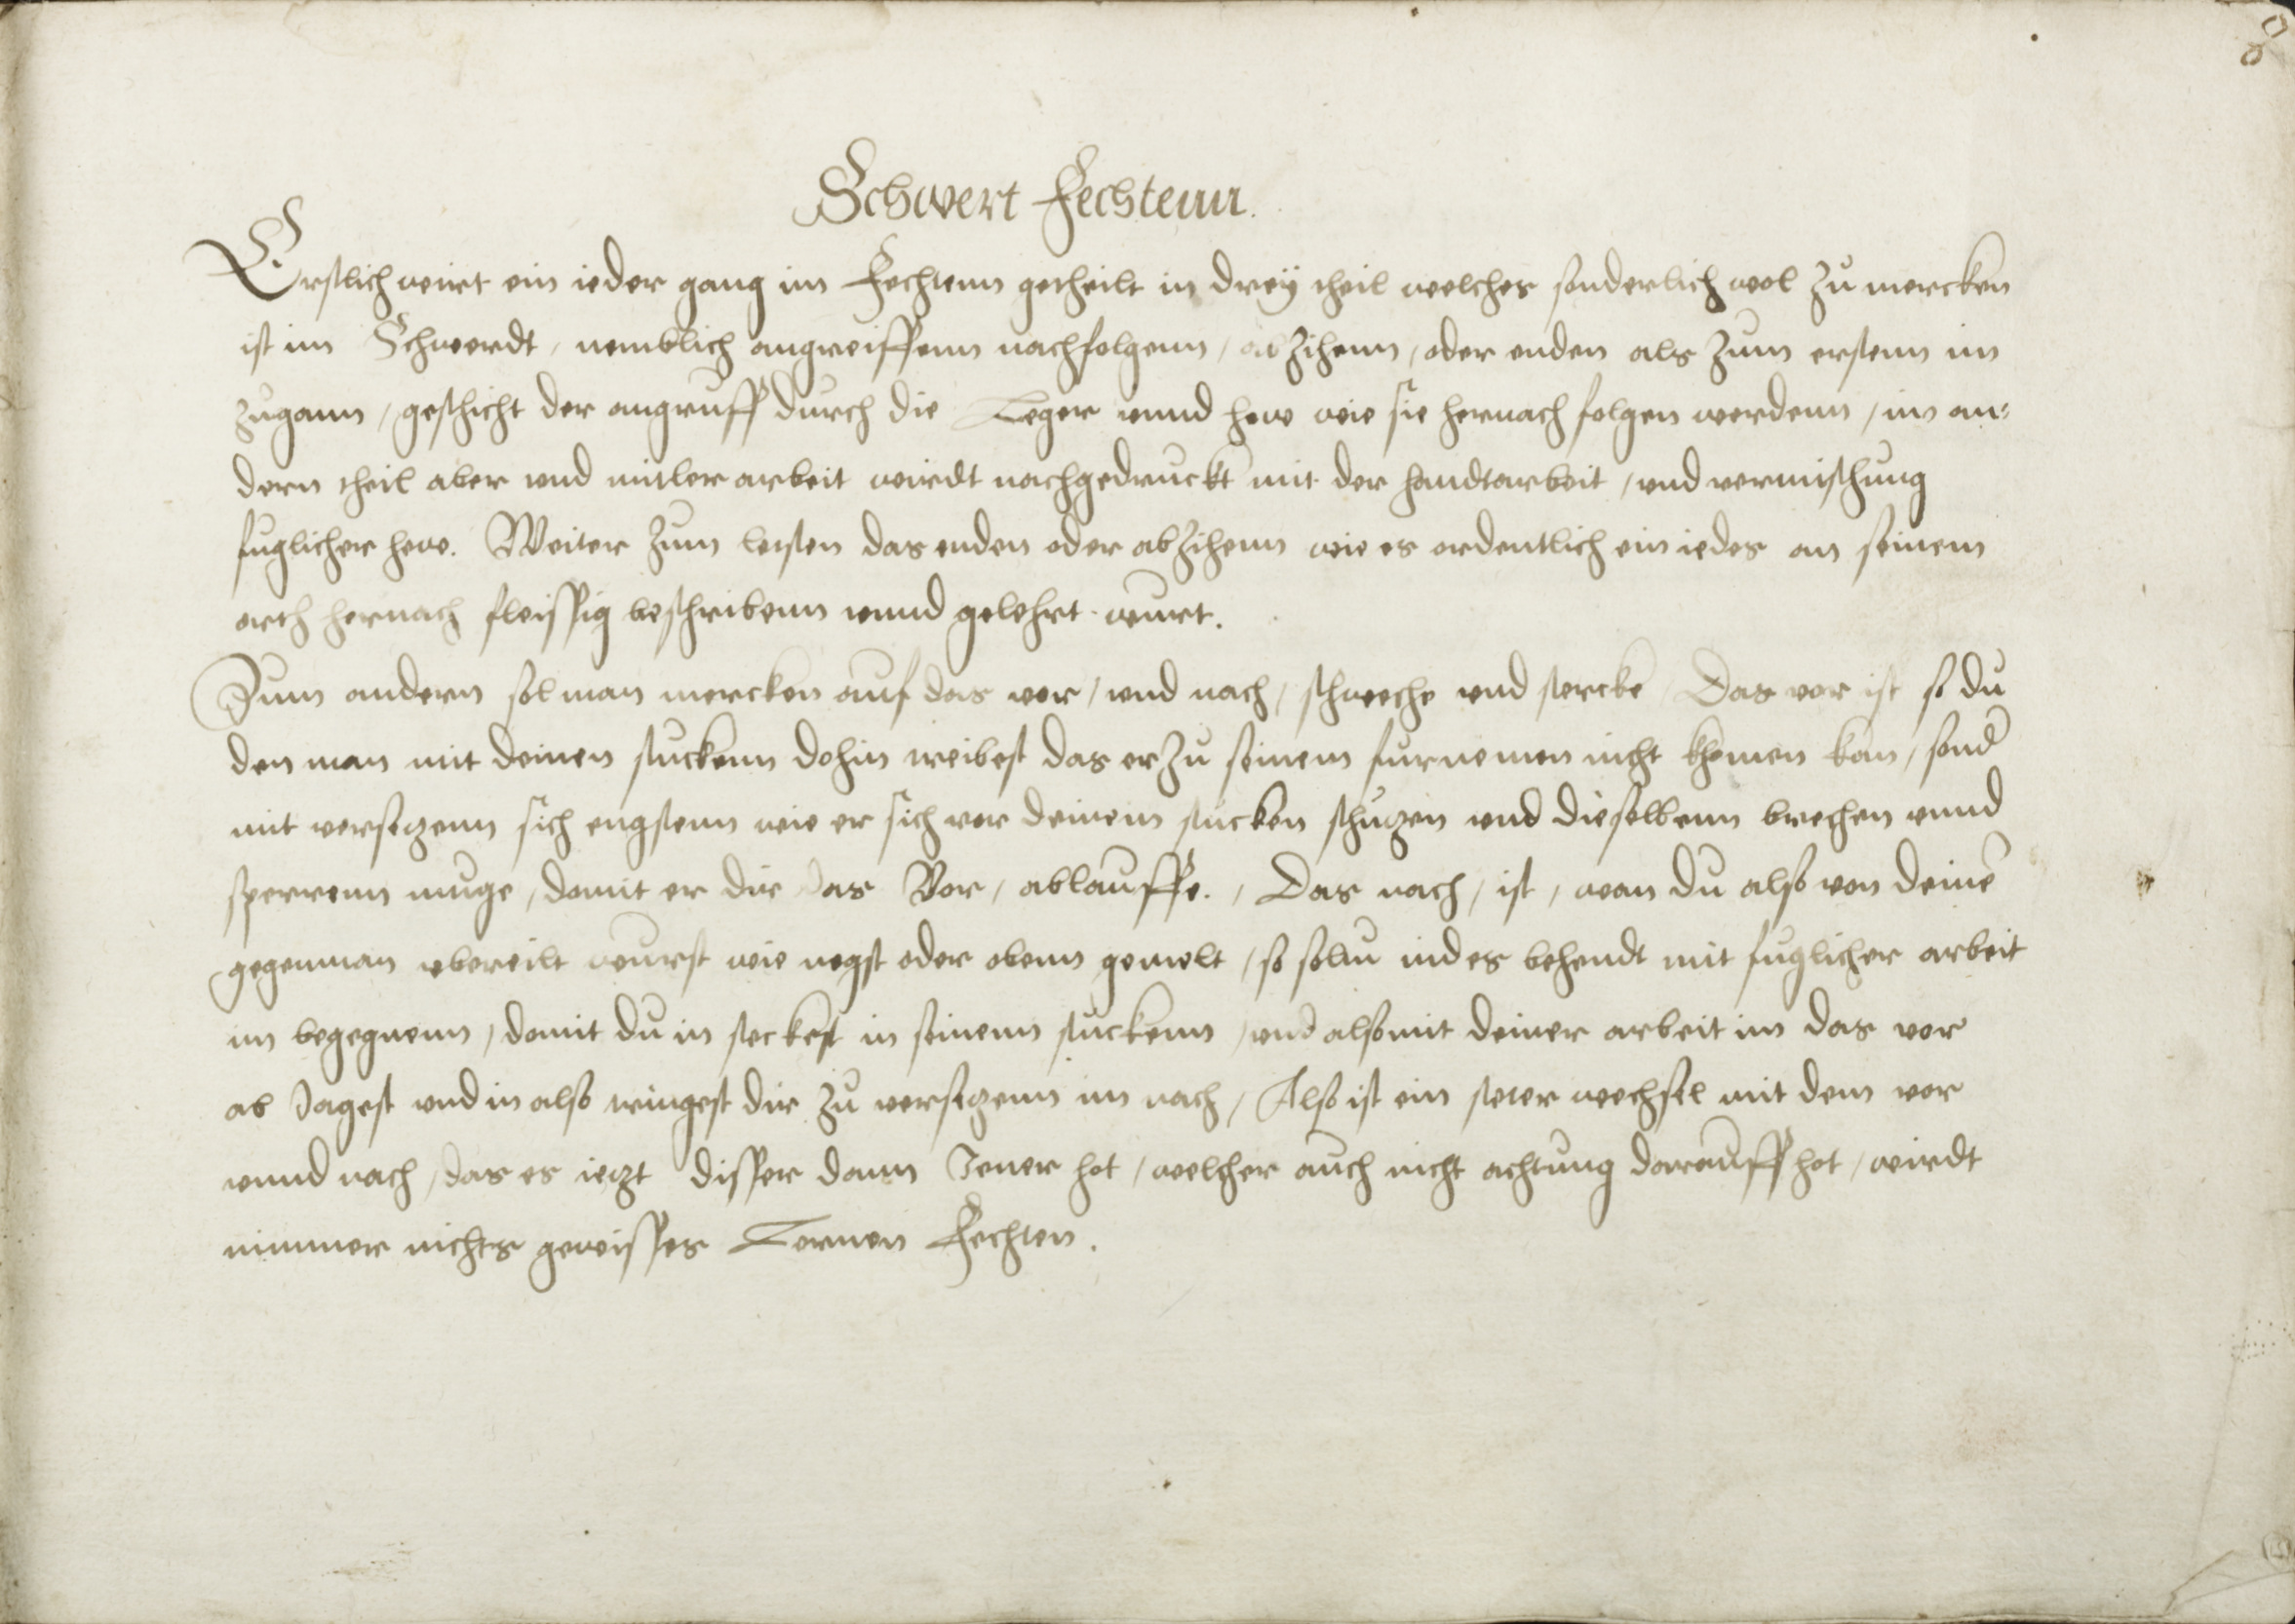 Schwert Fechtenn.
Erstlich wirt ein ieder gang im Fechtenn getheilt in dreÿ theil welches sonderlich wol zu mercken
ist im Schwerdt, nemblich angreiffenn nachfolgenn, abzihenn, oder enden als zum erstenn im
zugann, geschicht der angruff durch die Leger unnd hew wie sie hernach folgen werdenn, im an=
dern theil aber und mitler arbeit wirdt nachgedruckt mit der handtarbeit, und vermischung
fuglicher hew. Weiter zum letsten das enden oder abzihenn wie es ordentlich ein iedes an seinem
orth hernach fleissig beschribenn unnd gelehrt wurt.
Zum andern sol man mercken auf das vor, und nach, schweche und stercke, Das vor ist so du
den man mit deinen stuckenn dohin treibest das er zu seinem furnemen nicht khomen kan, sond
mit versetzenn sich engstenn wie er sich vor deinem stucken schutzen und dieselbenn brechen unnd
sperrenn muge, damit er dir das Vor, ablauffe., Das nach, ist, wan du also von deinē
gegenman ubereilt wurst wie negst oder obenn gemelt, so soltu indes behendt mit fuglicher arbeit
im begegnenn, domit du in steckest in seinenn stuckenn, und also mit deiner arbeit im das vor
ab Jagest und in also tringest dir zu versetzenn im nach, Also ist ein steter wechsel mit dem vor
unnd nach, das es ietzt disser dann Jener hat, welcher auch nicht achtung darauff hat, wirdt
nimmer nichts gewisses Lernen Fechten.